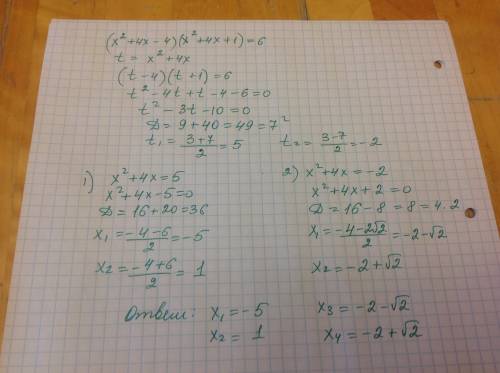 (x² + 4x - 4)(x² + 4x + 1) = 6
t = x² + 4x
(t - 4)(t + 1) = 6
t² - 4t + t - 4 - 6 = 0
t² - 3t - 10 = 0
D = 9 + 40 = 49 = 7²
t₁ = (3+7)/2 = 5 t₂ = (3-7)/2 = -2
1) x² + 4x = 5
x² + 4x - 5 = 0
D = 16 + 20 = 36
x₁ = (-4-6)/2 = -5
x₂ = (-4+6)/2 = 1
2) x² + 4x = -2
x² + 4x + 2 = 0
D = 16 - 8 = 8 = 4·2
x₁ = (-4-2√2)/2 = -2-√2
x₂ = -2+√2
Ответ: x₁ = -5 x₃ = -2-√2
x₂ = 1 x₄ = -2+√2